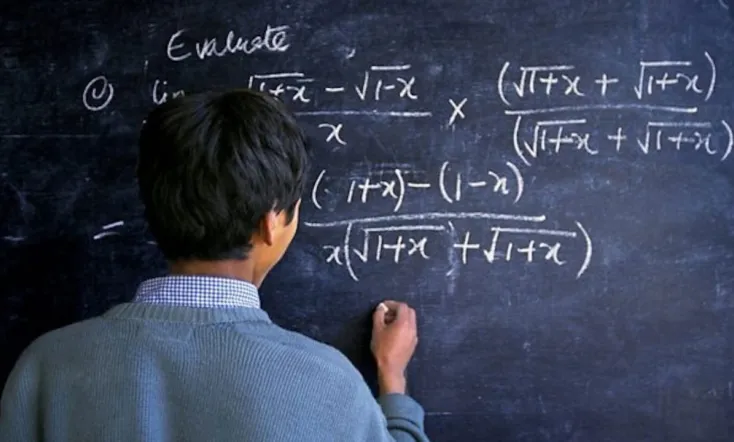 Evaluate
√1+x − √1-x / x × (√1+x + √1+x) / (√1+x + √1+x)
= (1+x) − (1-x) / x(√1+x + √1+x)